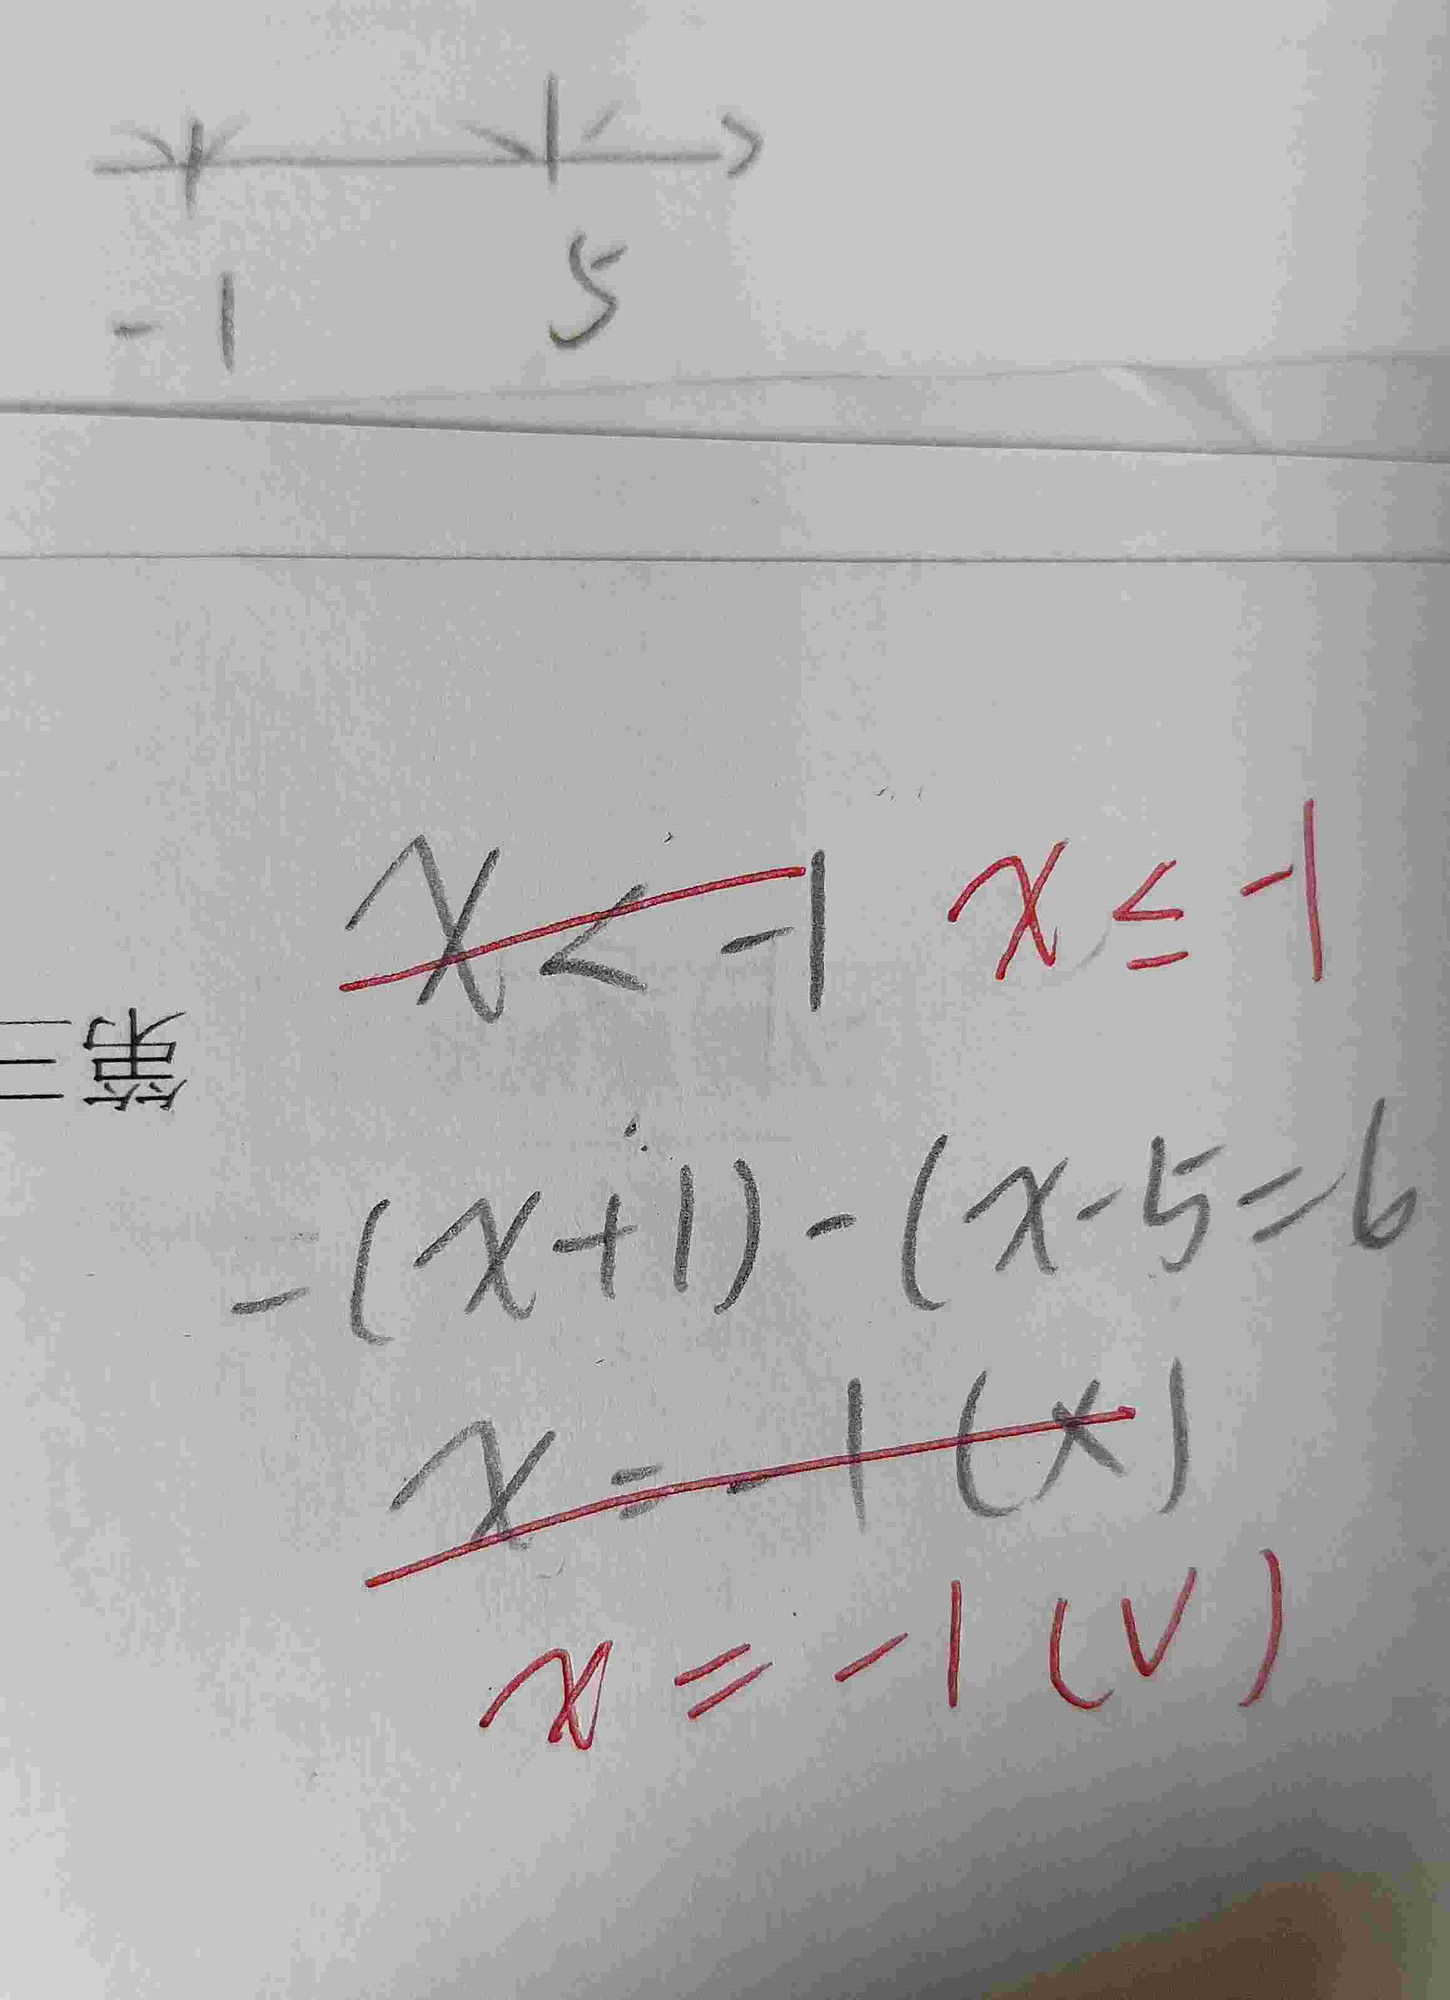 -1 5
x < -1 x ≤ -1
第三
-(x+1)-(x-5=6
x = -1 (×)
x = -1 (√)